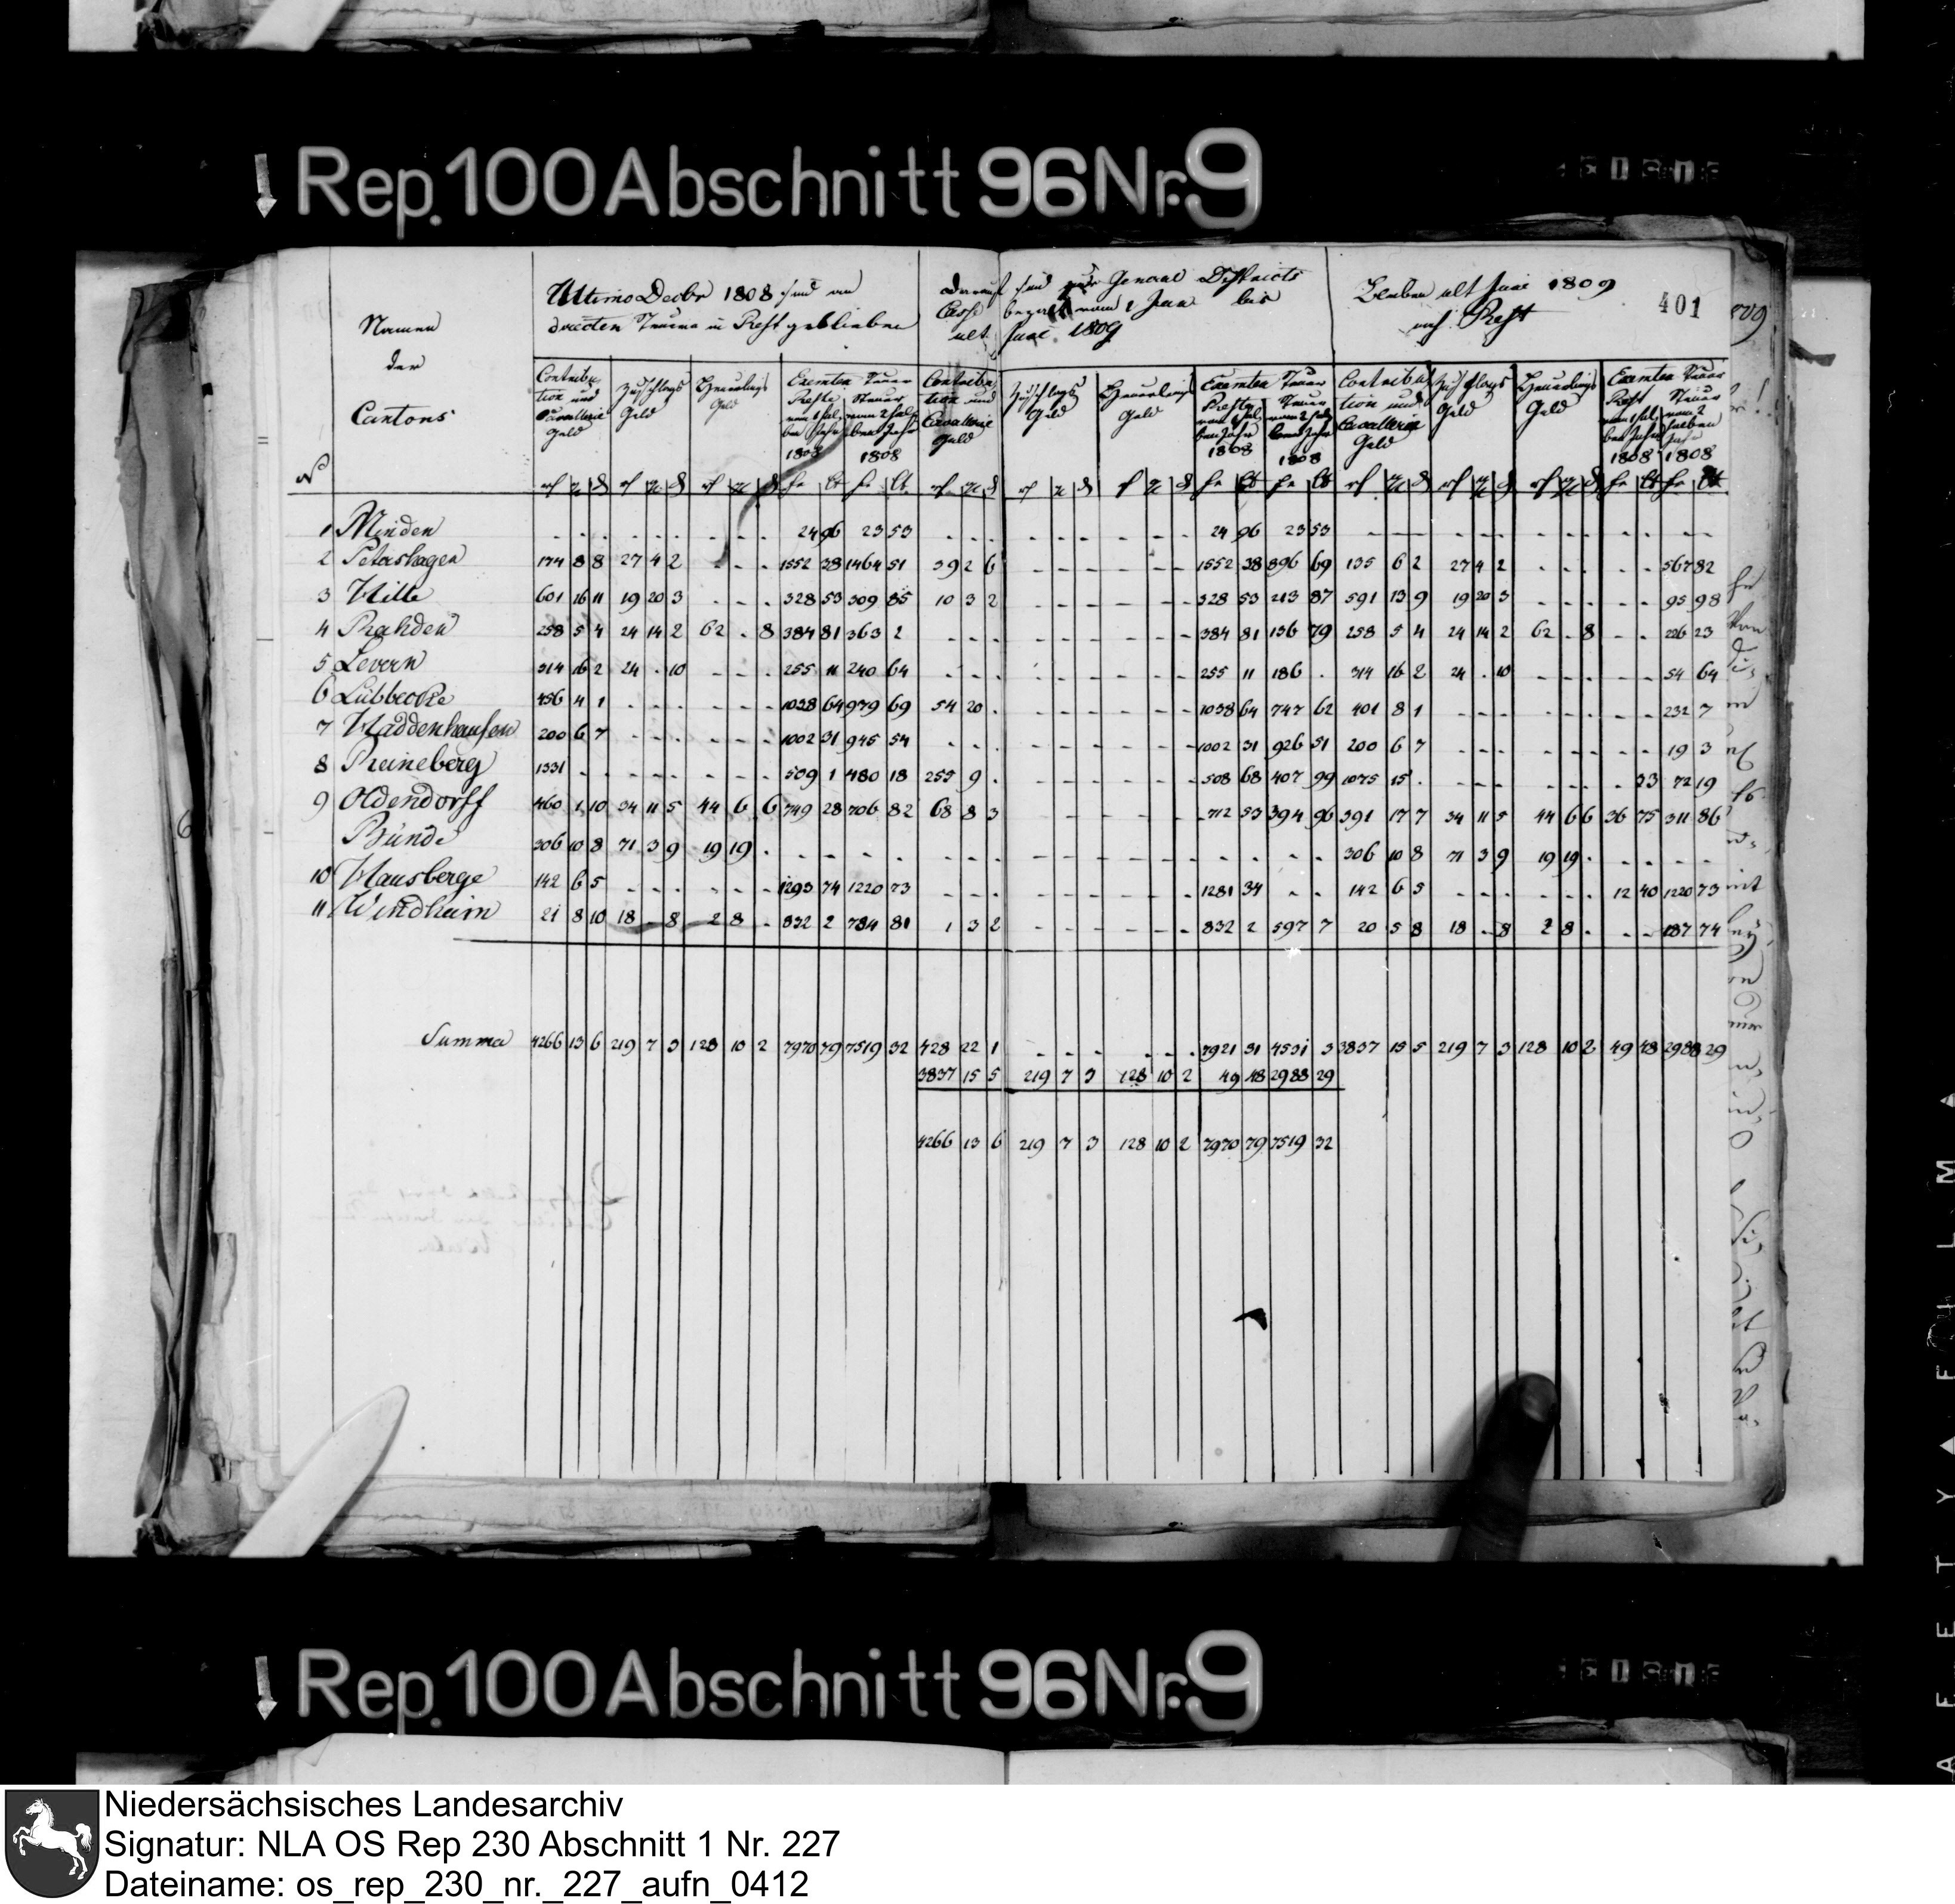 Rep. 100 Abschnitt 96 Nr. 9
401
Namen
der
Cantons
Ultimo Decbr 1808 sind an
directen Steuern in Rest geblieben
darauf sind zur General Districts
Casse bezalt vom 1 Janr bis
ult. Juni 1809
Bleiben ult Juni 1809
noch Rest
Contribution und Cavallerie Geld | Zuschlags Geld | Heuerlings Geld | Exemten Steuer Reste vom 1 halben Jahr 1808 | Steuer vom 2 halben Jahr 1808 | Contribution und Cavallerie Geld | Zuschlags Geld | Heuerlings Geld | Exemten Steuer Reste vom 1 halben Jahr 1808 | Steuer vom 2 halben Jahr 1808 | Contribution und Cavallerie Geld | Zuschlags Geld | Heuerlings Geld | Exemten Steuer Rest vom 1 halben Jahr 1808 | Steuer vom 2 halben Jahr 1808
1 Minden 24 96 23 53 24 96 23 53
2 Petershagen 174 8 8 27 4 2 1552 38 1464 51 39 2 6 1552 38 896 69 135 6 2 27 4 2 567 82
3 Hille 601 16 11 19 20 3 328 53 309 85 10 3 2 328 53 213 87 591 13 9 19 20 3 95 98
4 Rahden 258 5 4 24 14 2 62 . 8 384 81 363 2 384 81 136 79 258 5 4 24 14 2 62 . 8 226 23
5 Levern 314 16 2 24 . 10 255 11 240 64 255 11 186 . 314 16 2 24 . 10 54 64
6 Lübbecke 456 4 1 1038 64 979 69 54 20 . 1038 64 747 62 401 8 1 232 7
7 Haddenhausen 200 6 7 1002 31 945 54 1002 31 926 51 200 6 7 19 3
8 Reineberg 1331 . . 509 1 480 18 255 9 . 508 68 407 99 1075 15 . . 33 72 19
9 Oldendorff 460 1 10 34 11 5 44 6 6 749 28 706 82 68 8 3 712 53 394 96 391 17 7 34 11 5 44 6 6 36 75 311 86
Bünde 306 10 8 71 3 9 19 19 . 306 10 8 71 3 9 19 19 .
10 Hausberge 142 6 5 1293 74 1220 73 1281 34 142 6 5 12 40 1220 73
11 Windheim 21 8 10 18 . 8 2 8 . 832 2 784 81 1 3 2 832 2 597 7 20 5 8 18 . 8 2 8 . 187 74
Summa 4266 13 6 219 7 3 128 10 2 7970 79 7519 32 428 22 1 7921 31 4531 3 3837 15 5 219 7 3 128 10 2 49 48 2988 29
3837 15 5 219 7 3 128 10 2 49 48 2988 29
4266 13 6 219 7 3 128 10 2 7970 79 7519 32
Rep. 100 Abschnitt 96 Nr. 9
Niedersächsisches Landesarchiv
Signatur: NLA OS Rep 230 Abschnitt 1 Nr. 227
Dateiname: os_rep_230_nr._227_aufn_0412